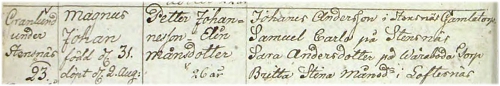 Cranlund
under
Stensnäs
23.
Magnus
Johan
född d. 31.
döpt d. 2 Aug:
Petter Johan-
neson Elin
Månsdotter
26 år
Johanes Anderson i Stensnäs Gamlatorp
Samuel Carls på Stensnäs
Sara Andersdotter på Torp
Britta Stina Månsd: i Loftesnäs